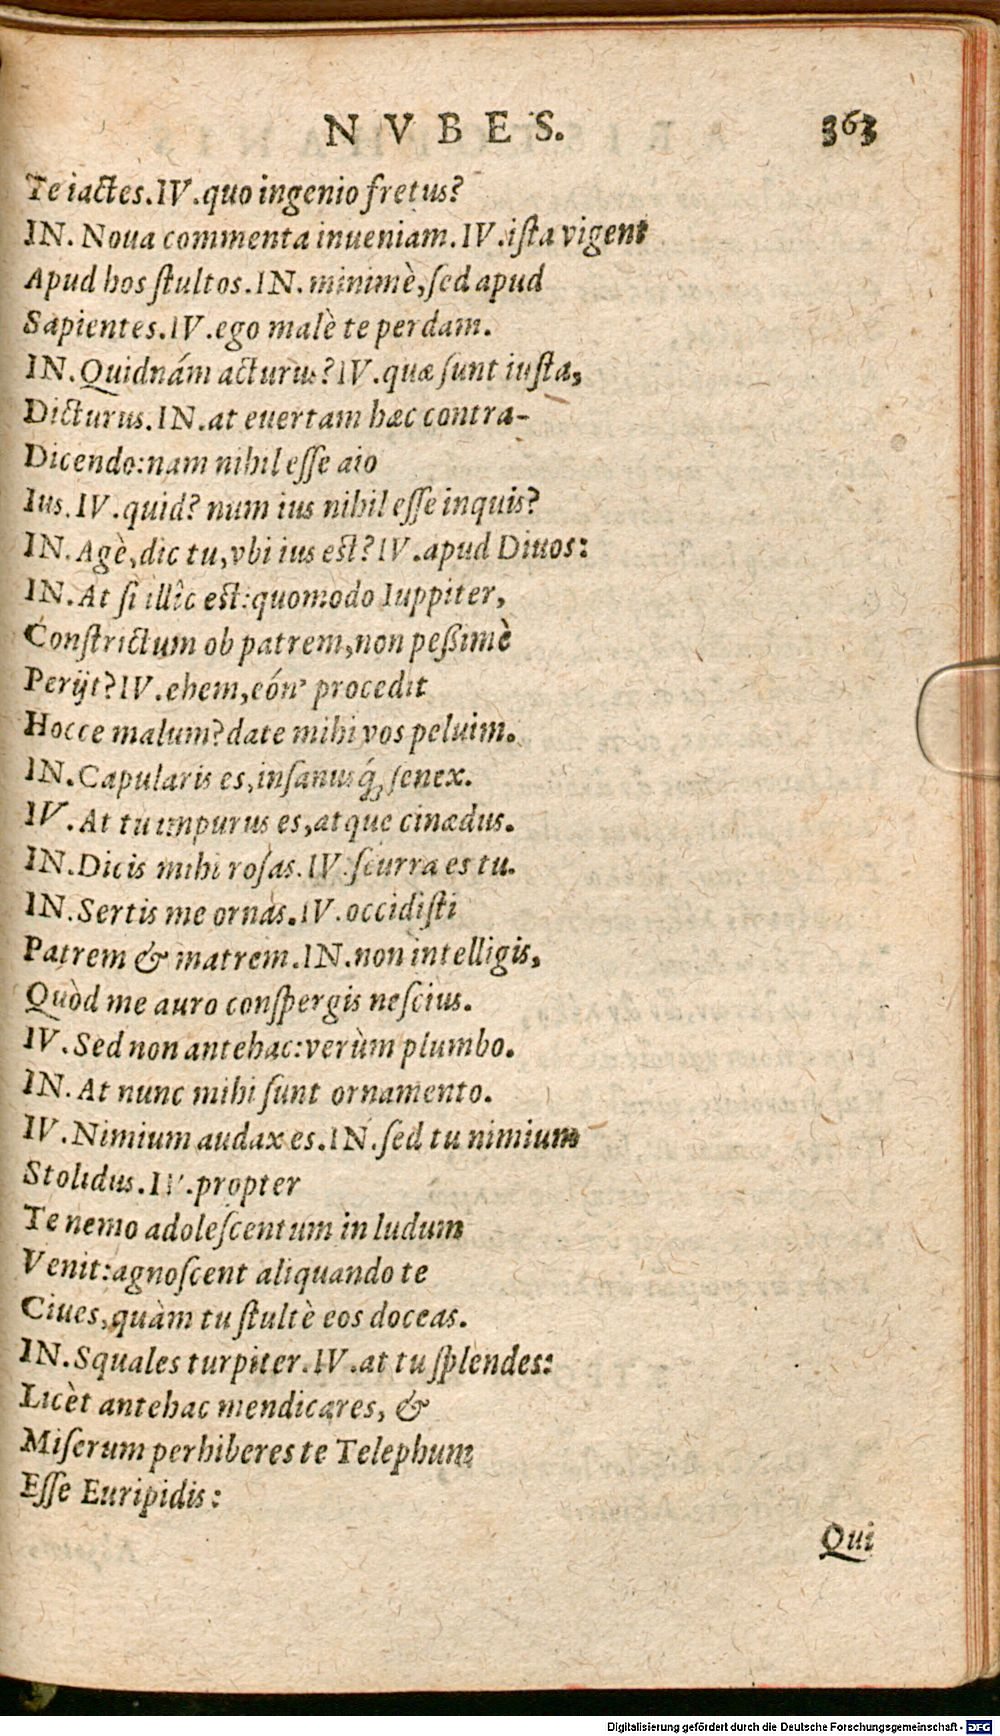 NVBES. 363
Te iactes. IV. quo ingenio fretus?
IN. Noua commenta inueniam. IV. ista vigent
Apud hos stultos. IN. minimè, sed apud
Sapientes. IV. ego malè te perdam.
IN. Quidnám acturus? IV. quæ sunt iusta,
Dicturus. IN. at euertam hæc contra-
Dicendo: nam nihil esse aio
Ius. IV. quid? num ius nihil esse inquis?
IN. Agè, dic tu, vbi ius est? IV. apud Diuos:
IN. At si illîc est: quomodo Iuppiter,
Constrictum ob patrem, non peßimè
Perijt? IV. ehem, eón' procedit
Hocce malum? date mihi vos peluim.
IN. Capularis es, insanusq́; senex.
IV. At tu impurus es, atque cinædus.
IN. Dicis mihi rosas. IV. scurra es tu.
IN. Sertis me ornas. IV. occidisti
Patrem & matrem. IN. non intelligis,
Quòd me auro conspergis nescius.
IV. Sed non antehac: verùm plumbo.
IN. At nunc mihi sunt ornamento.
IV. Nimium audax es. IN. sed tu nimium
Stolidus. IV. propter
Te nemo adolescentum in ludum
Venit: agnoscent aliquando te
Ciues, quàm tu stultè eos doceas.
IN. Squales turpiter. IV. at tu splendes:
Licèt antehac mendicares, &
Miserum perhiberes te Telephum
Esse Euripidis:
Qui
Digitalisierung gefördert durch die Deutsche Forschungsgemeinschaft - DFG